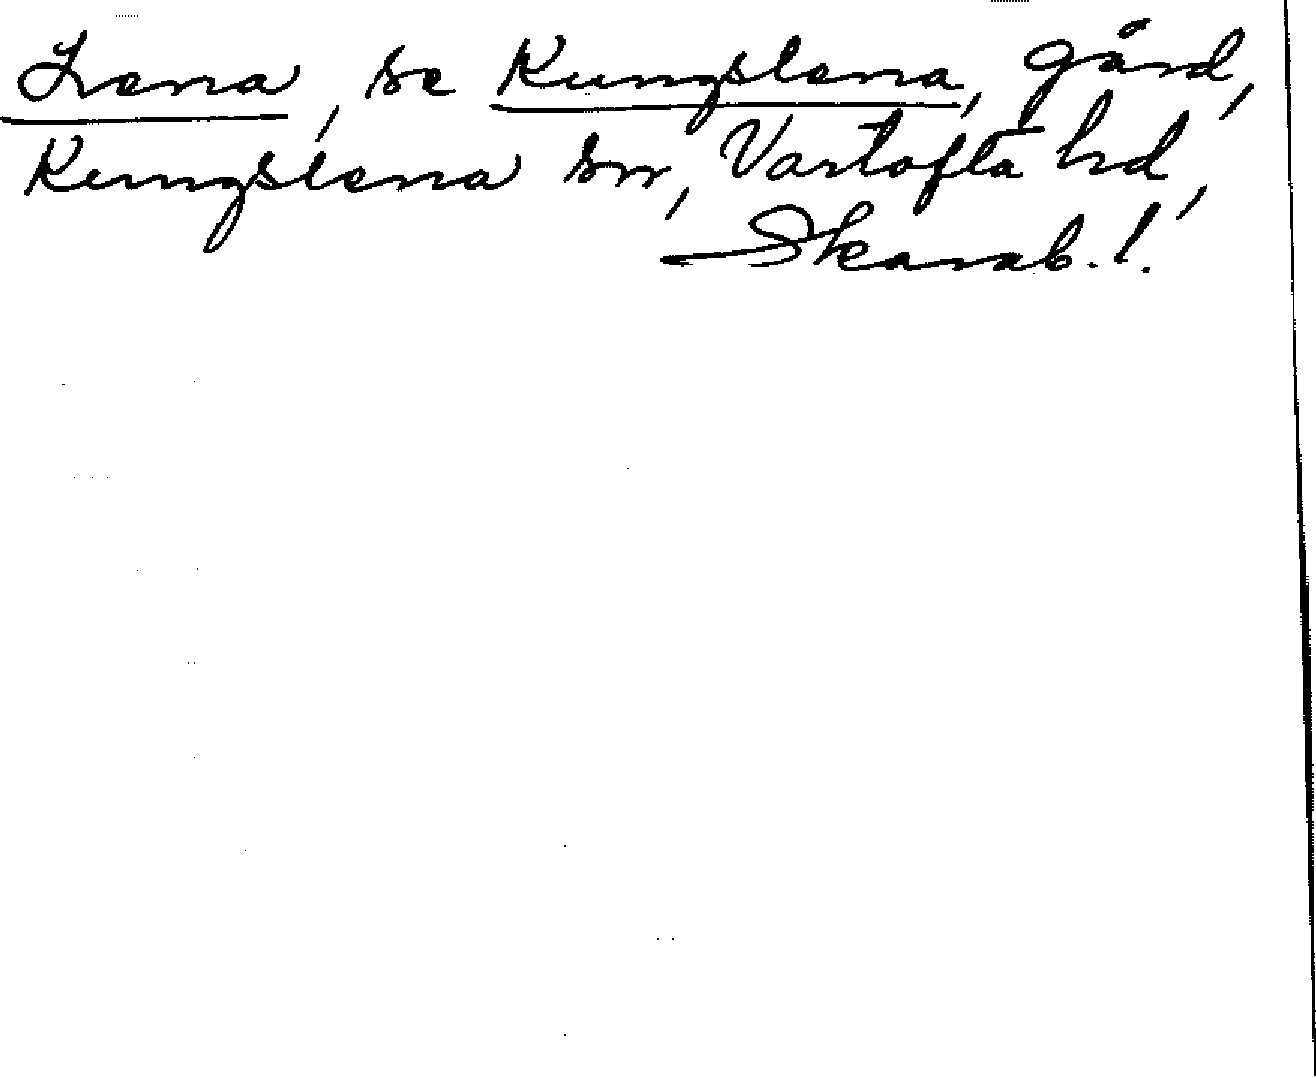 Lena, se Kungslena, gård,
Kungslena sn, Vartofta hd,
Skarab. l.